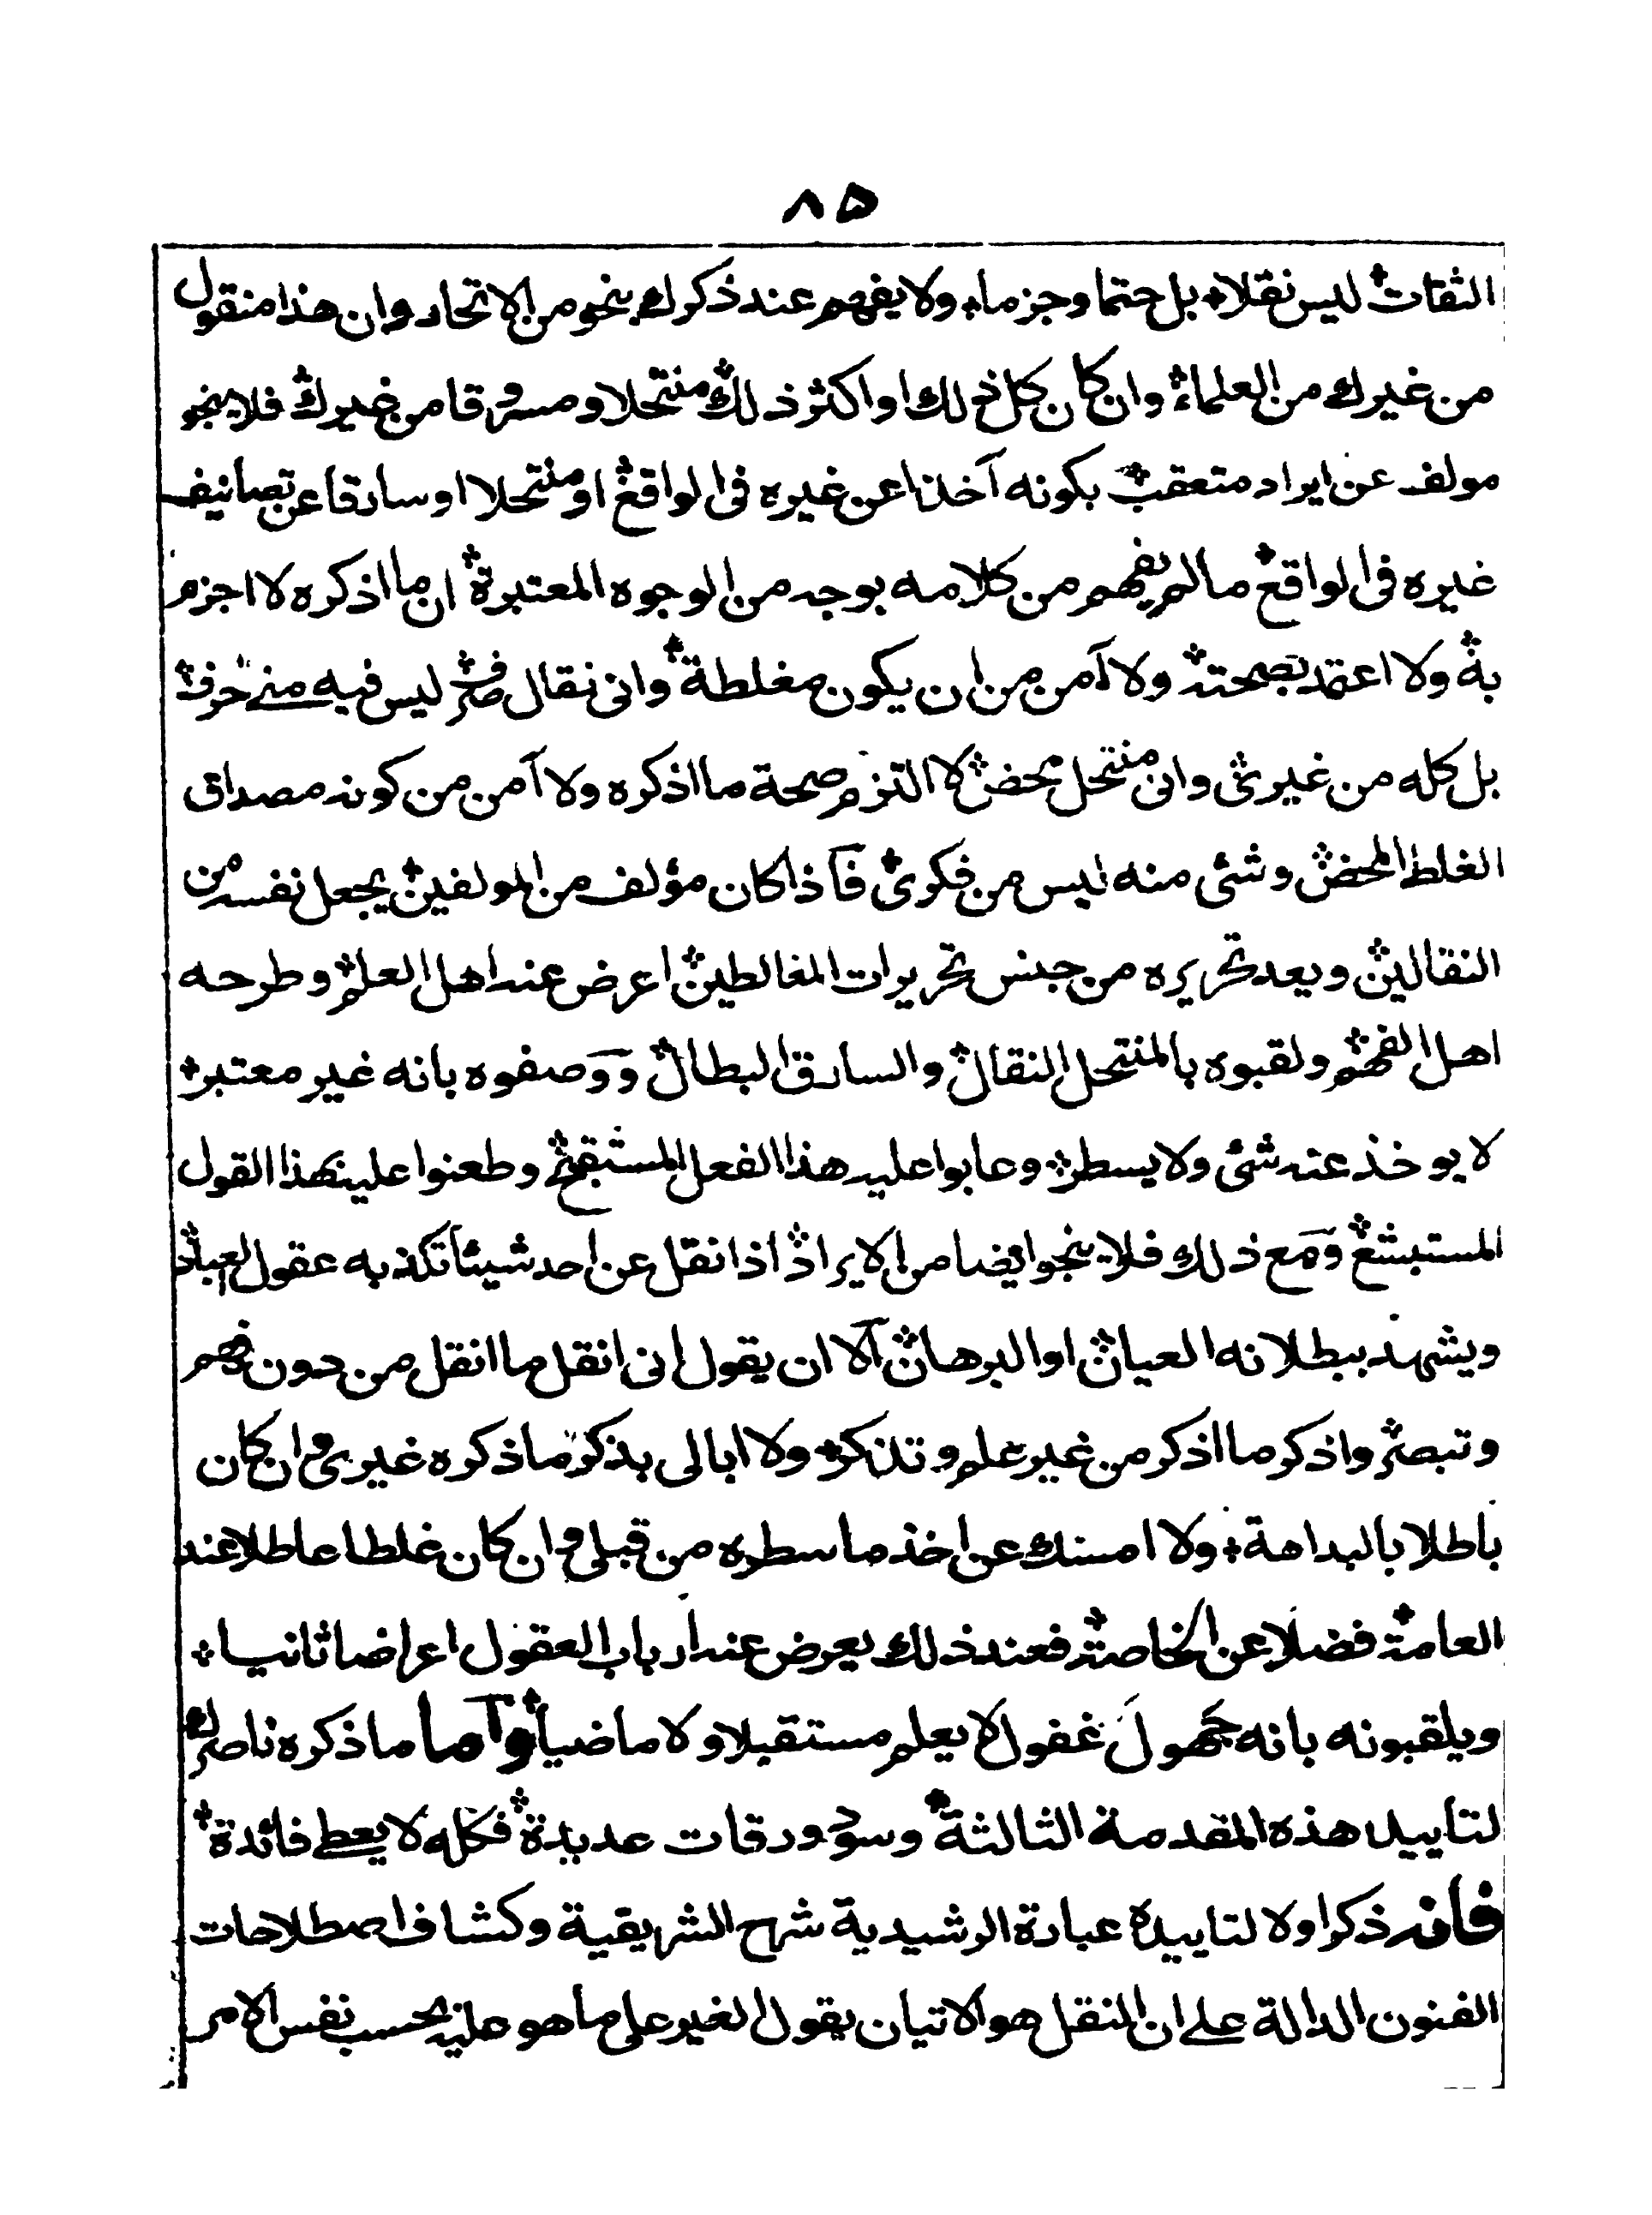 ٨٥
الثقات ليس نقلا بل حتما وجزما ولا يفهم عند ذكرك بنحو من الاتحاد وان هذا منقول
من غيرك من العلماء وان كان كل ذلك او اكثر ذلك منتحلا ومسروقا من غيرك فلا ينجو
مولف عن ايراد متعقب بكونه آخذا عن غيره فى الواقع او منتحلا او سارقا عن تصانيف
غيره فى الواقع ما لم يفهم من كلامه بوجه من الوجوه المعتبرة ان ما اذكره لا اجزم
به ولا اعتمد بصحته ولا آمن من ان يكون مغلطة وانى نقال صرف ليس فيه منے حرف
بل كله من غيرى وانى منتحل محض لا التزم صحة ما اذكره ولا آمن من كونه مصداق
الغلط المحض وشئ منه ليس من فكرى فآذا كان مؤلف من المولفين يجعل نفسه من
النقالين ويعد تحريره من جنس تحريرات المغالطين اعرض عنه اهل العلم وطرحه
اهل الفهم ولقبوه بالمنتحل النقال والسارق البطال ووصفوه بانه غير معتبر
لا يوخذ عنه شئ ولا يسطر وعابوا عليه هذا الفعل المستقبح وطعنوا عليه بهذا القول
المستبشع ومع ذلك فلا ينجو ايضا من الايراد اذا نقل عن احد شيئا تكذبه عقول العباد
ويشهد ببطلانه العيان او البرهان آلا ان يقول انى انقل ما انقل من دون فهم
وتبصر واذكر ما اذكر من غير علم وتذكر ولا ابالى بذكر ما ذكره غيرى وان كان
باطلا بالبداهة ولا امسك عن اخذ ما سطره من قبلى وان كان غلطا عاطلا عند
العامة فضلا عن الخاصة فعند ذلك يعرض عنه ارباب العقول اعراضا ثانيا
ويلقبونه بانه جهول غفول لا يعلم مستقبلا ولا ماضيا وآما ما ذكره ناصرك
لتاييد هذه المقدمة الثالثة وسود ورقات عديدة فكله لا يعطے فائدة
فانه ذكر اولا لتاييده عبارة الرشيدية شرح الشريفية وكشاف اصطلاحات
الفنون الدالة علے ان النقل هو الاتيان بقول الغير على ما هو عليه بحسب نفس الامر